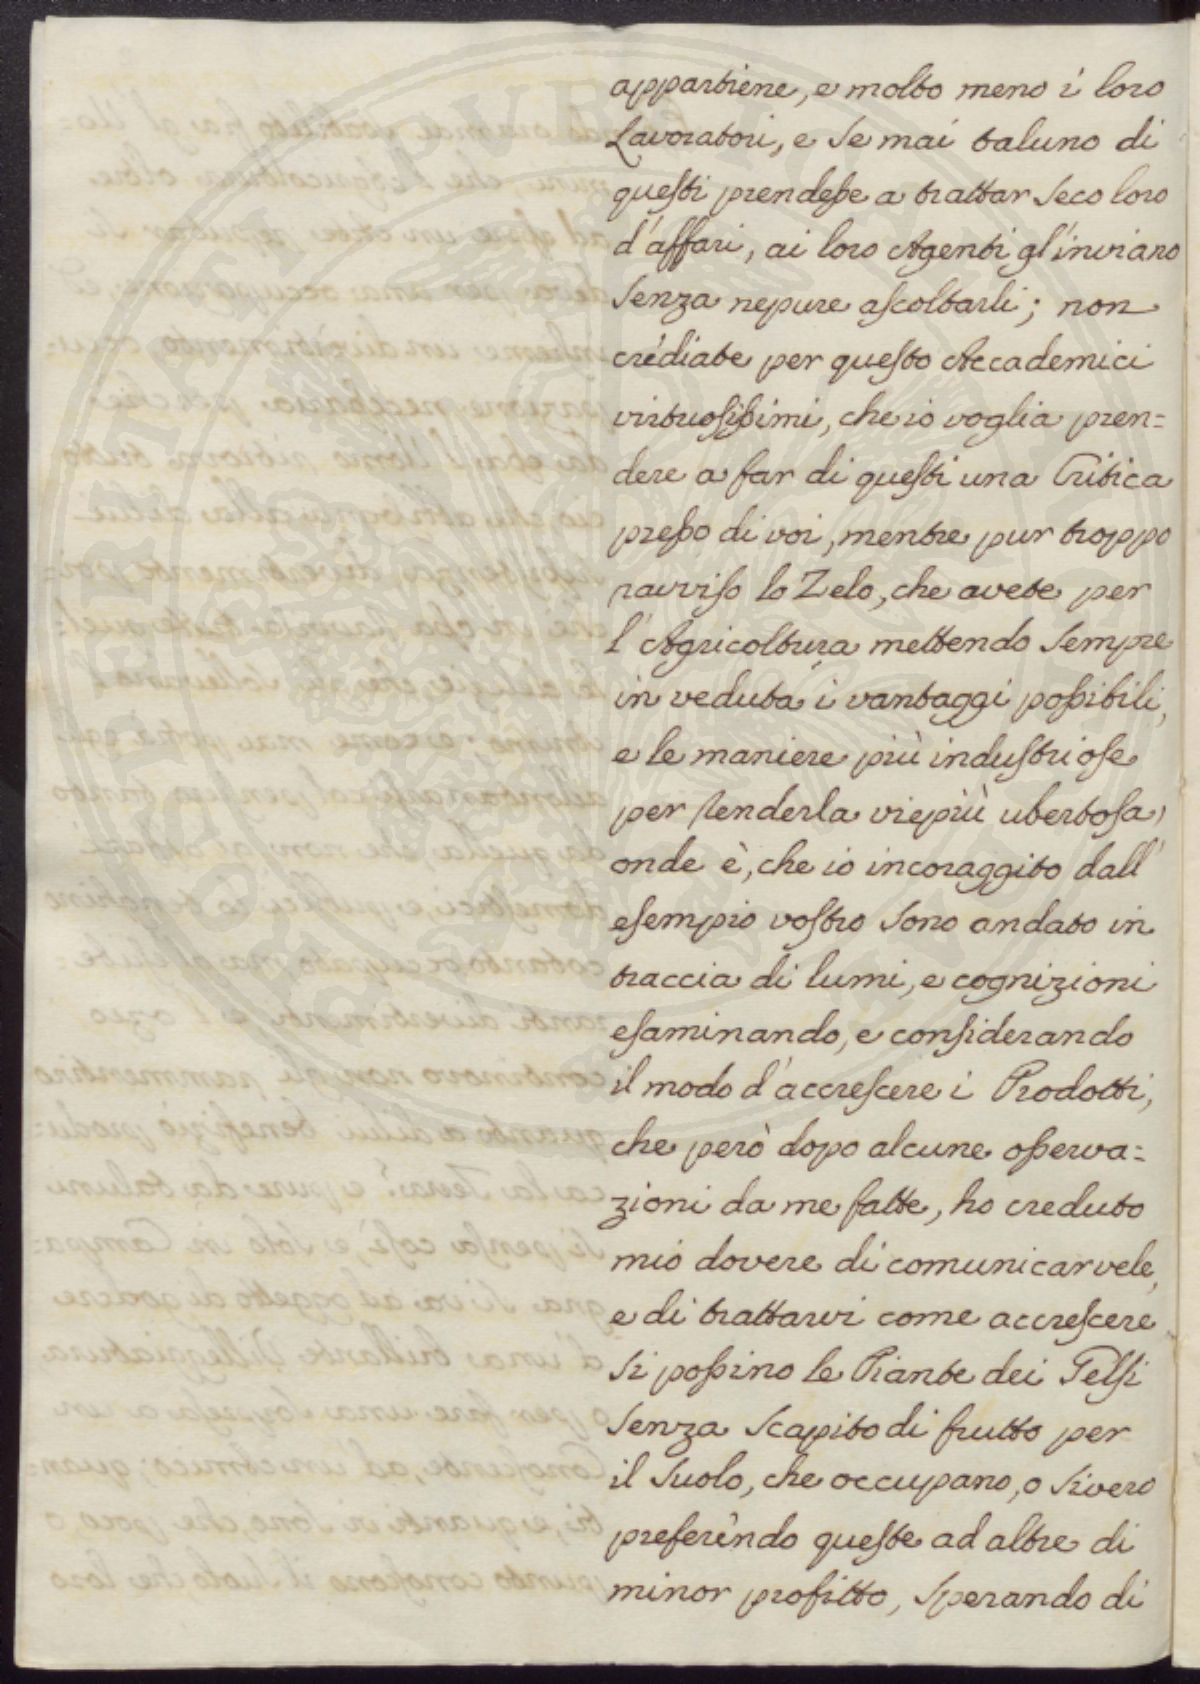 appartiene, e molto meno i loro
Lavoratori, e se mai taluno di
questi prendesse a trattar seco loro
d'affari, ai loro Agenti gl'inviano
senza nepure ascoltarli; non
crediate per questo Accademici
virtuosissimi, che io voglia pren=
dere a far di questi una Critica
presso di voi, mentre pur troppo
ravviso lo Zelo, che avete per
l'Agricoltura mettendo sempre
in veduta i vantaggi possibili,
e le maniere più industriose
per renderla viepiù ubertosa,
onde è, che io incoraggito dall'
esempio vostro sono andato in
traccia di lumi, e cognizioni
esaminando, e considerando
il modo d'accrescere i Prodotti,
che però dopo alcune osserva=
zioni da me fatte, ho creduto
mio dovere di comunicarvele,
e di trattarvi come accrescere
si possino le Piante dei Gelsi
senza scapito di frutto per
il suolo, che occupano, o sivero
preferèndo queste ad altre di
minor profitto, sperando di